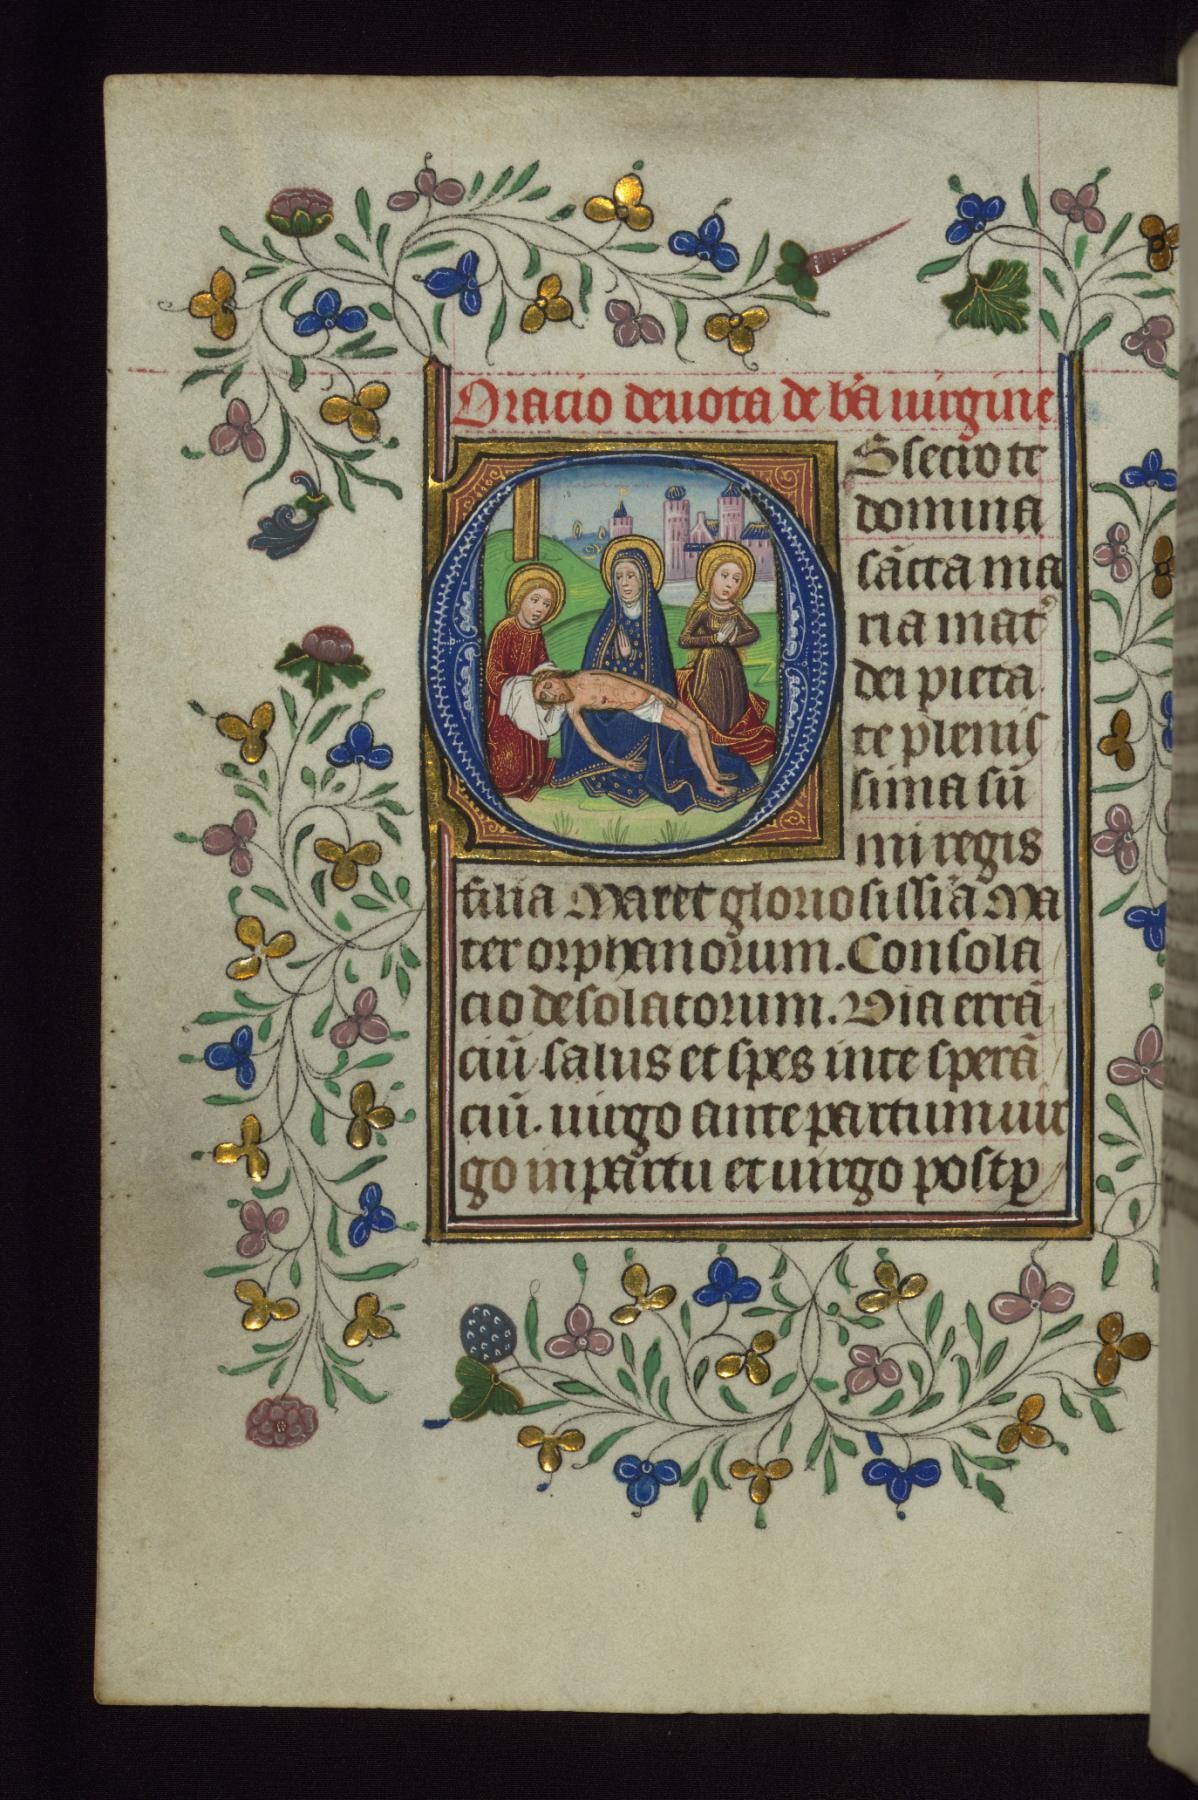 Oracio deuota de bt̄a uirgine
OBsecro te
domina
sācta ma
ria mat᷑
dei pieta
te plenis
sima sū
mi regis
filia Maret gloriosissīa Ma
ter orphanorum. Consola
cio desolatorum. Via errā
ciū. salus et spes in te sperā
ciū. uirgo ante partum uir
go in partu et uirgo post ꝑ